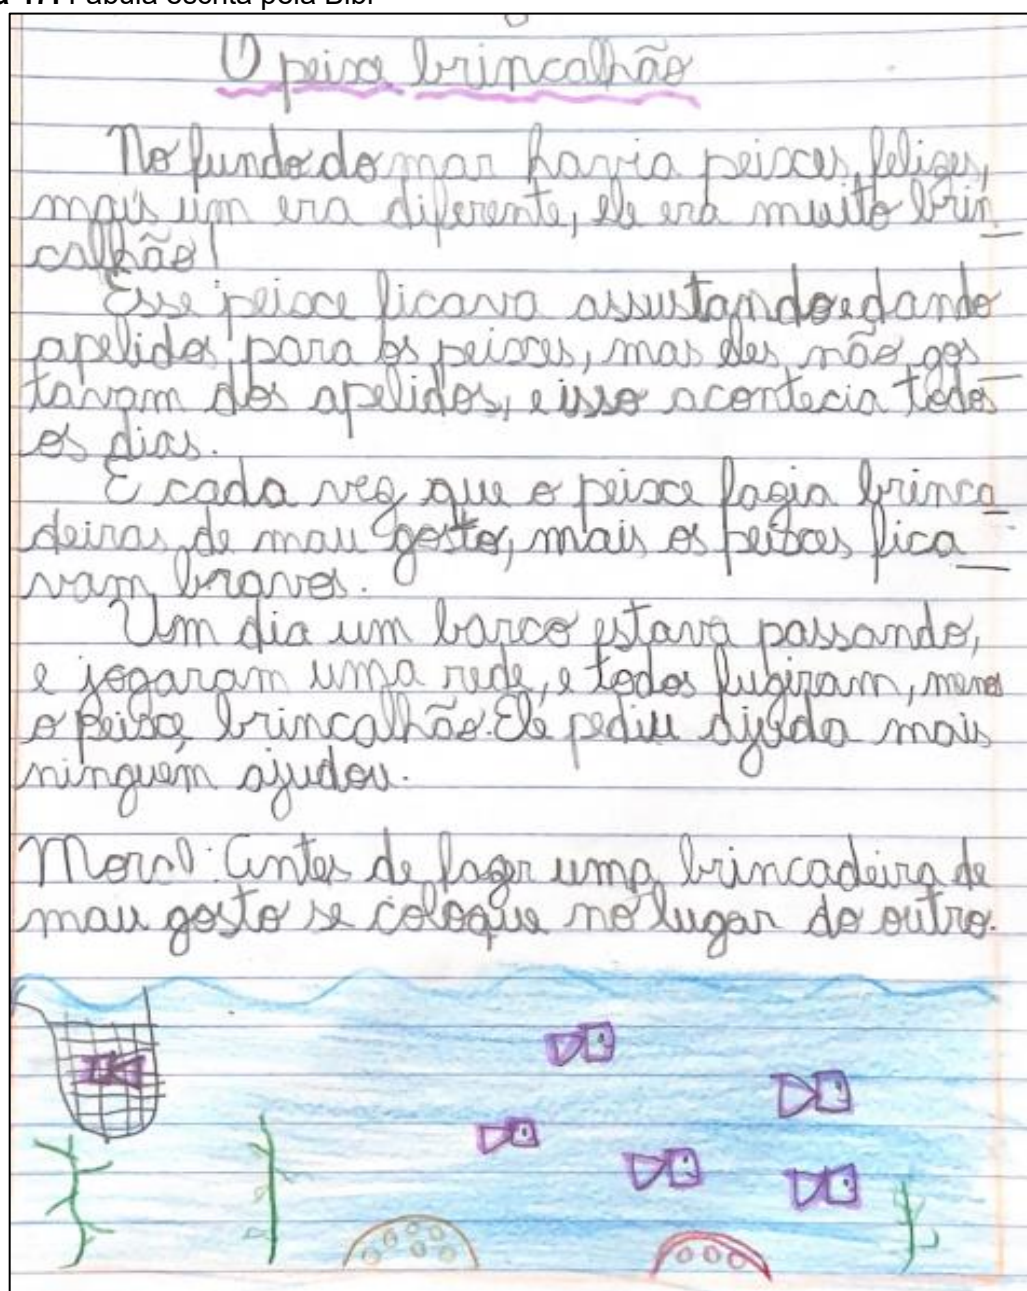 O peixe brincalhão
No fundo do mar havia peixes felizes,
mais um era diferente, ele era muito brin
calhão!
Esse peixe ficava assustando e dando
apelidos para os peixes, mas eles não gos
tavam dos apelidos, e isso acontecia todos
os dias.
E cada vez que o peixe fazia brinca
deiras de mau gosto, mais os peixes fica
vam bravos.
Um dia um barco estava passando,
e jogaram uma rede, e todos fugiram, menos
o peixe brincalhão. Ele pediu ajuda mais
ninguém ajudou.
Moral: Antes de fazer uma brincadeira de
mau gosto se coloque no lugar do outro.